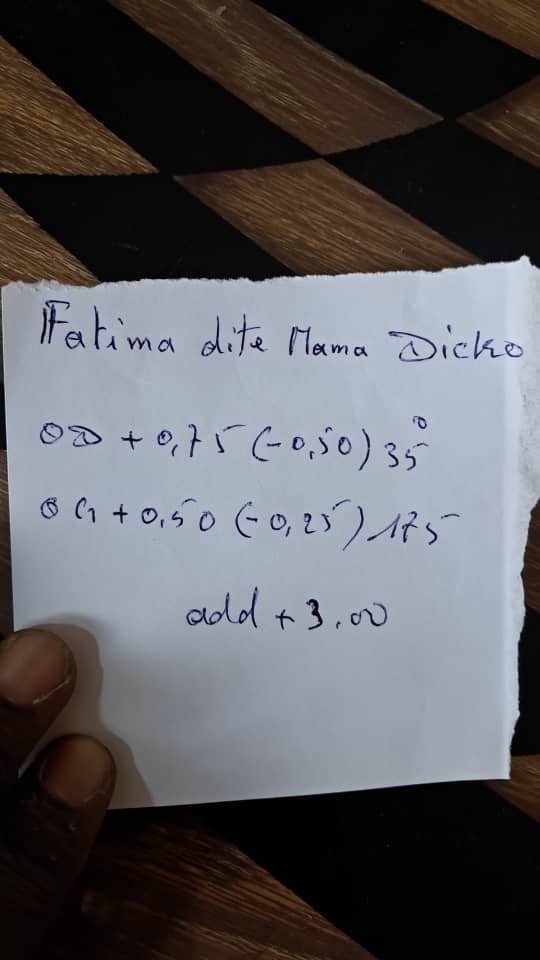 Fatima dite Mama Dicko
OD + 0,75 (-0,50) 35°
OG + 0,50 (-0,25) 175
add + 3.00